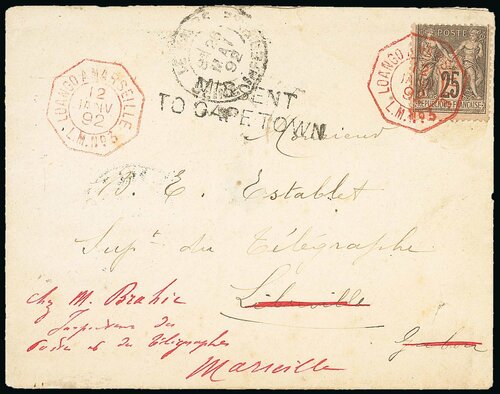 LOANGO A MARSEILLE
12
JANV
92
L.M. No 3
MAI
92
MIS-SENT
TO CAPETOWN
POSTE
25
REPUBLIQUE FRANÇAISE
LOANGO A
JANV
L.M. No 3
Monsieur
B. E. Establet
Supt du Télégraphe
Libreville
Gabon
chez M. Brahic
Inspecteur des
Postes et des Télégraphes
Marseille